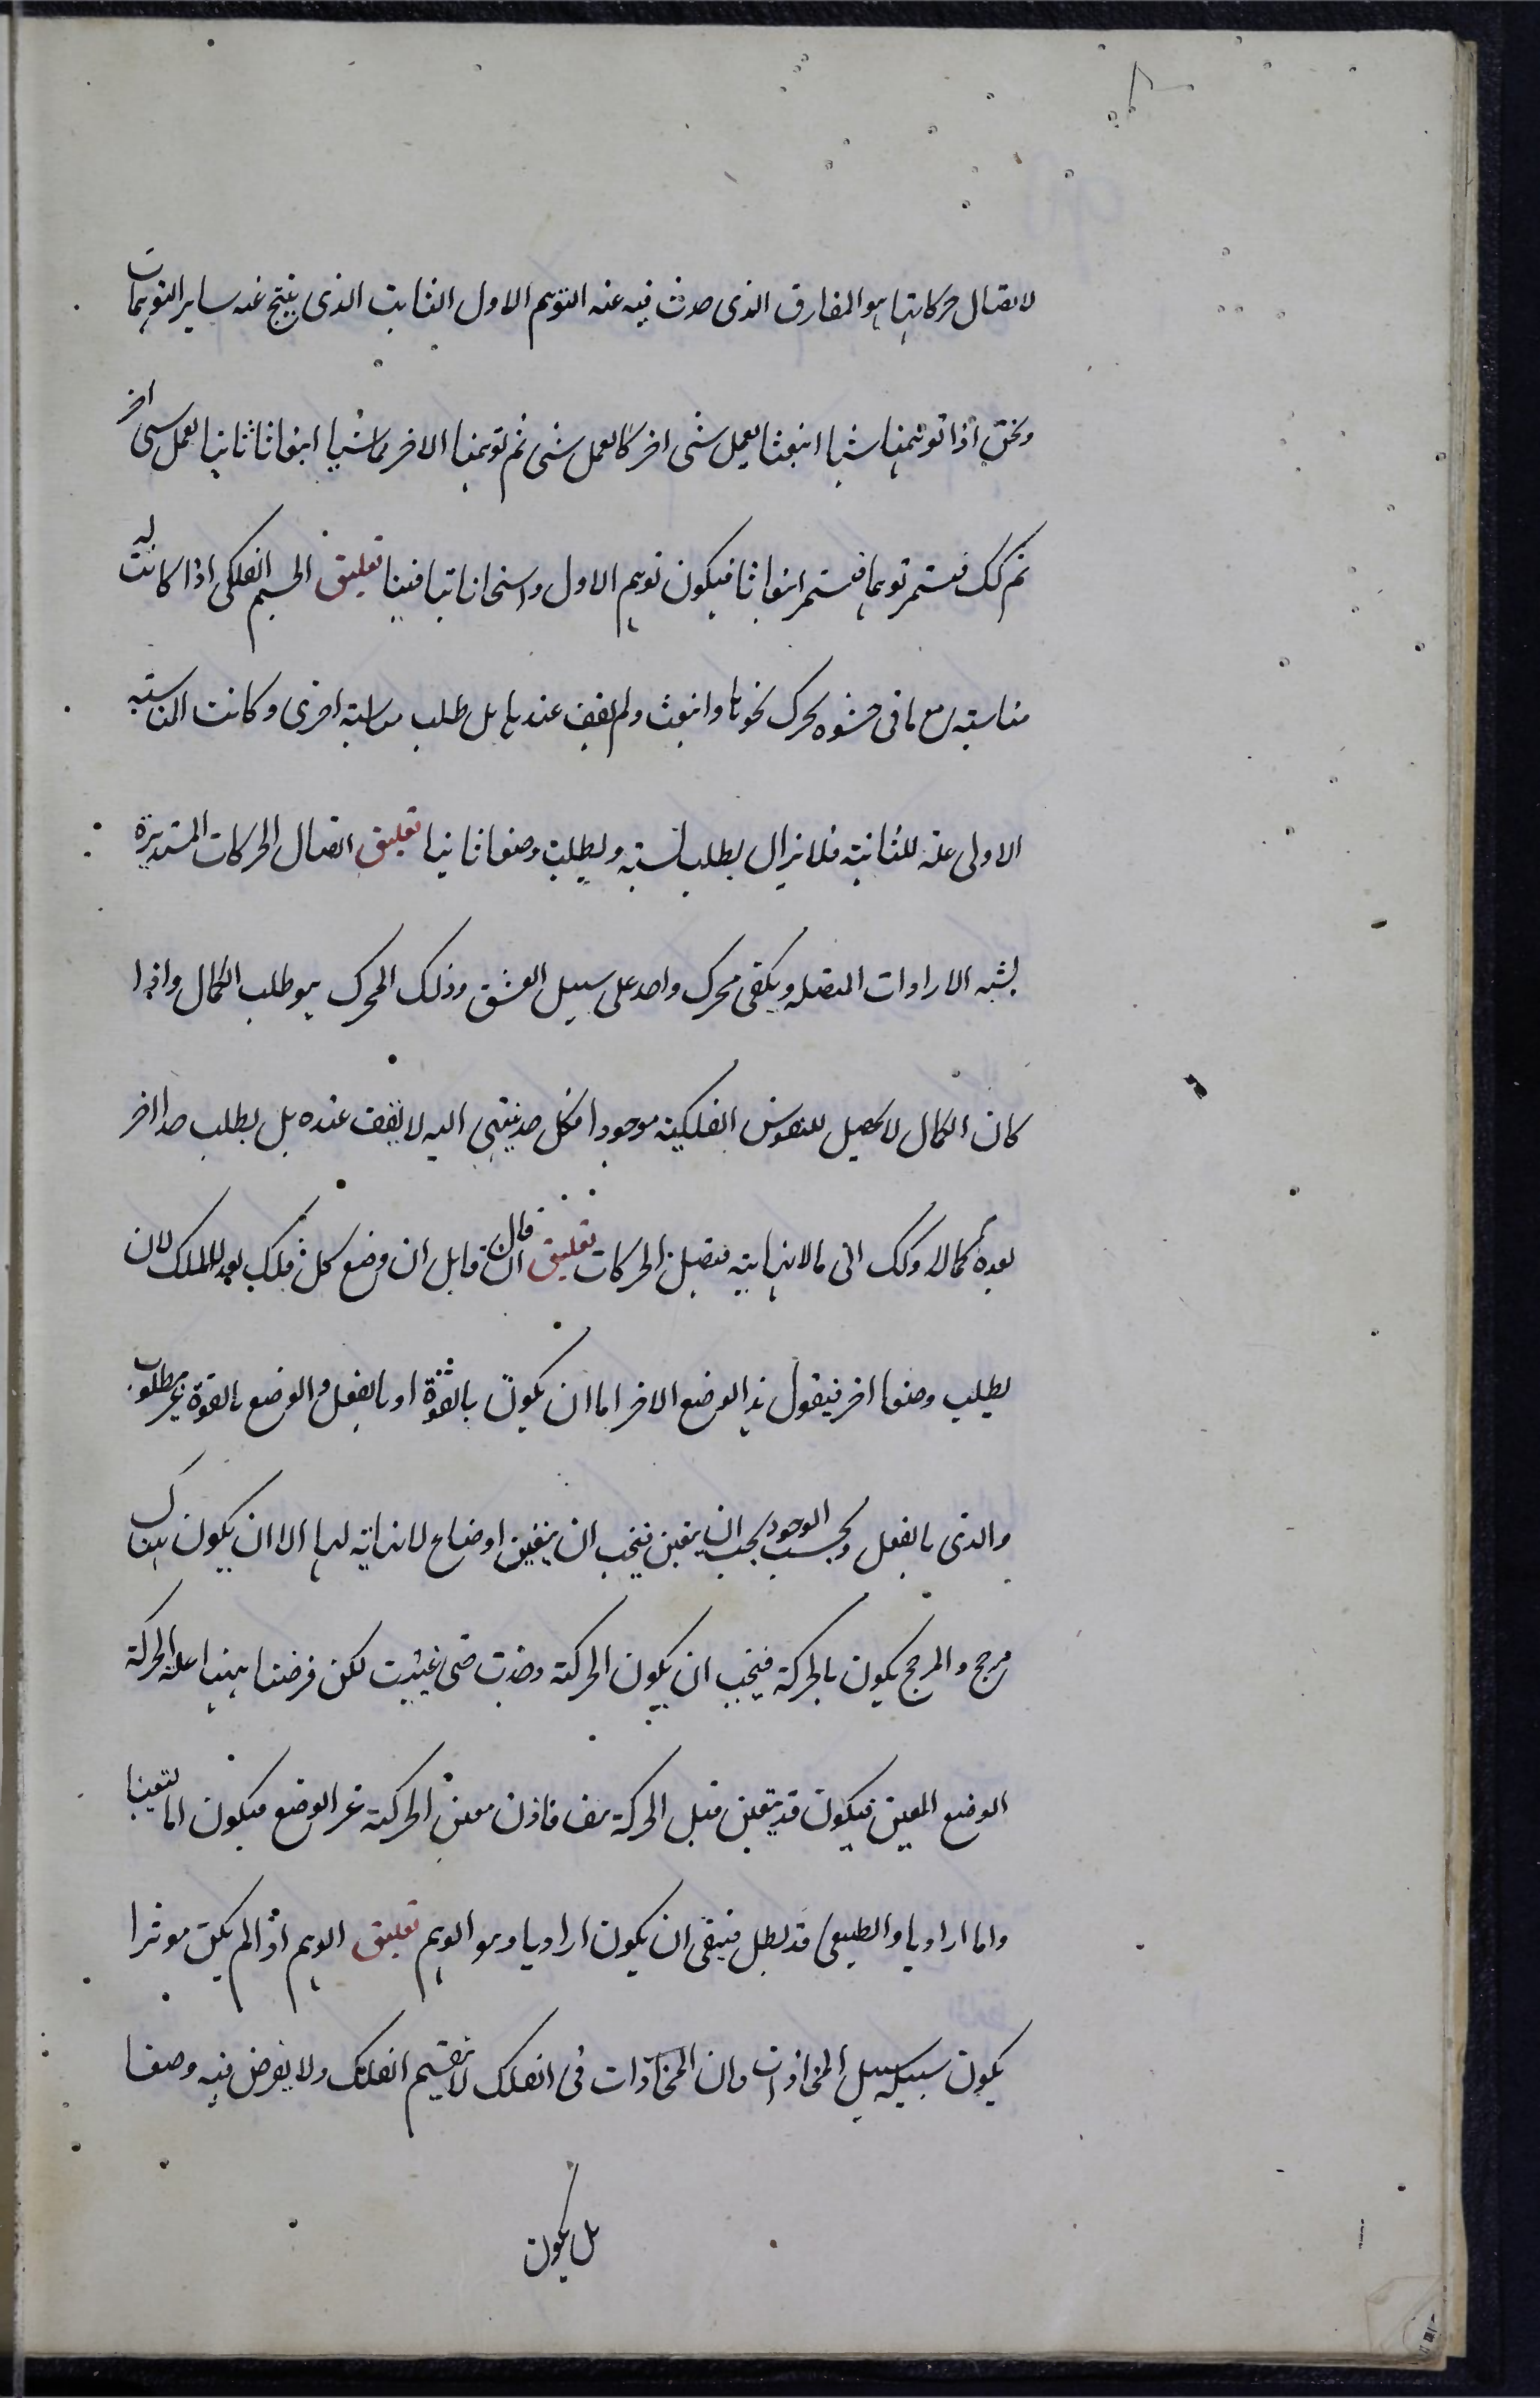 لاتصال حركاتها هو المفارق الذى حدث فيه عنه التوهم الاول الثابت الذى ينتج عنه ساير التوهمات
ونحن اذا توهمنا شيئا انبعثنا لعمل شى اخر كالعمل شى ثم توهمنا الاخر شيئا انبعاثا ثانيا لعمل شى اخر
ثم كك فيستمر توهما فيستمر انبعاثا فيكون توهم الاول ثابتا فينا تعليق الجسم الفلكى اذا كانت له
مناسبة مع ما فى حشوه تحرك نحوها وانبعث ولم يقف عندها بل طلب مناسبة اخرى وكانت المناسبة
الاولى علة للثانية فلا يزال يطلب نسبة ويطلب وضعا ثانيا تعليق اتصال الحركات المستديرة
يشبه الارادات المتصلة ويكفى محرك واحد على سبيل العشق وذلك المحرك هو طلب الكمال واذا
كان الكمال لا يحصل للنفوس الفلكية موجودا فكل حد ينتهى اليه لا يقف عنده بل يطلب حدا اخر
يعده كمالا وكك الى مالا نهاية فتتصل الحركات تعليق ان قال قايل ان وضع كل فلك يعد للفلك لان
يطلب وضعا اخر فيقول هذا الوضع الاخر اما ان يكون بالقوة او بالفعل والوضع بالقوة غير مطلوب
والذى بالفعل وبحسب الوجود يجب ان يتعين فيجب ان يتعين اوضاع لا نهاية لها الا ان يكون هناك
مرجح والمرجح يكون بالحركة فيجب ان يكون الحركة وجدت حتى عينت لكن فرضنا هيهنا علة الحركة
الوضع المعين فيكون قد يتعين قبل الحركة هف فاذن معين الحركة غير الوضع فيكون اما طبيعيا
واما اراديا والطبيعى قد بطل فبقى ان يكون اراديا وهو الوهم تعليق الوهم اذا لم يكن موثرا
يكون سبيله سبيل المحاذات وان المحاذات فى الفلك لا تقسم الفلك ولا يفرض فيه وضعا
بل يكون